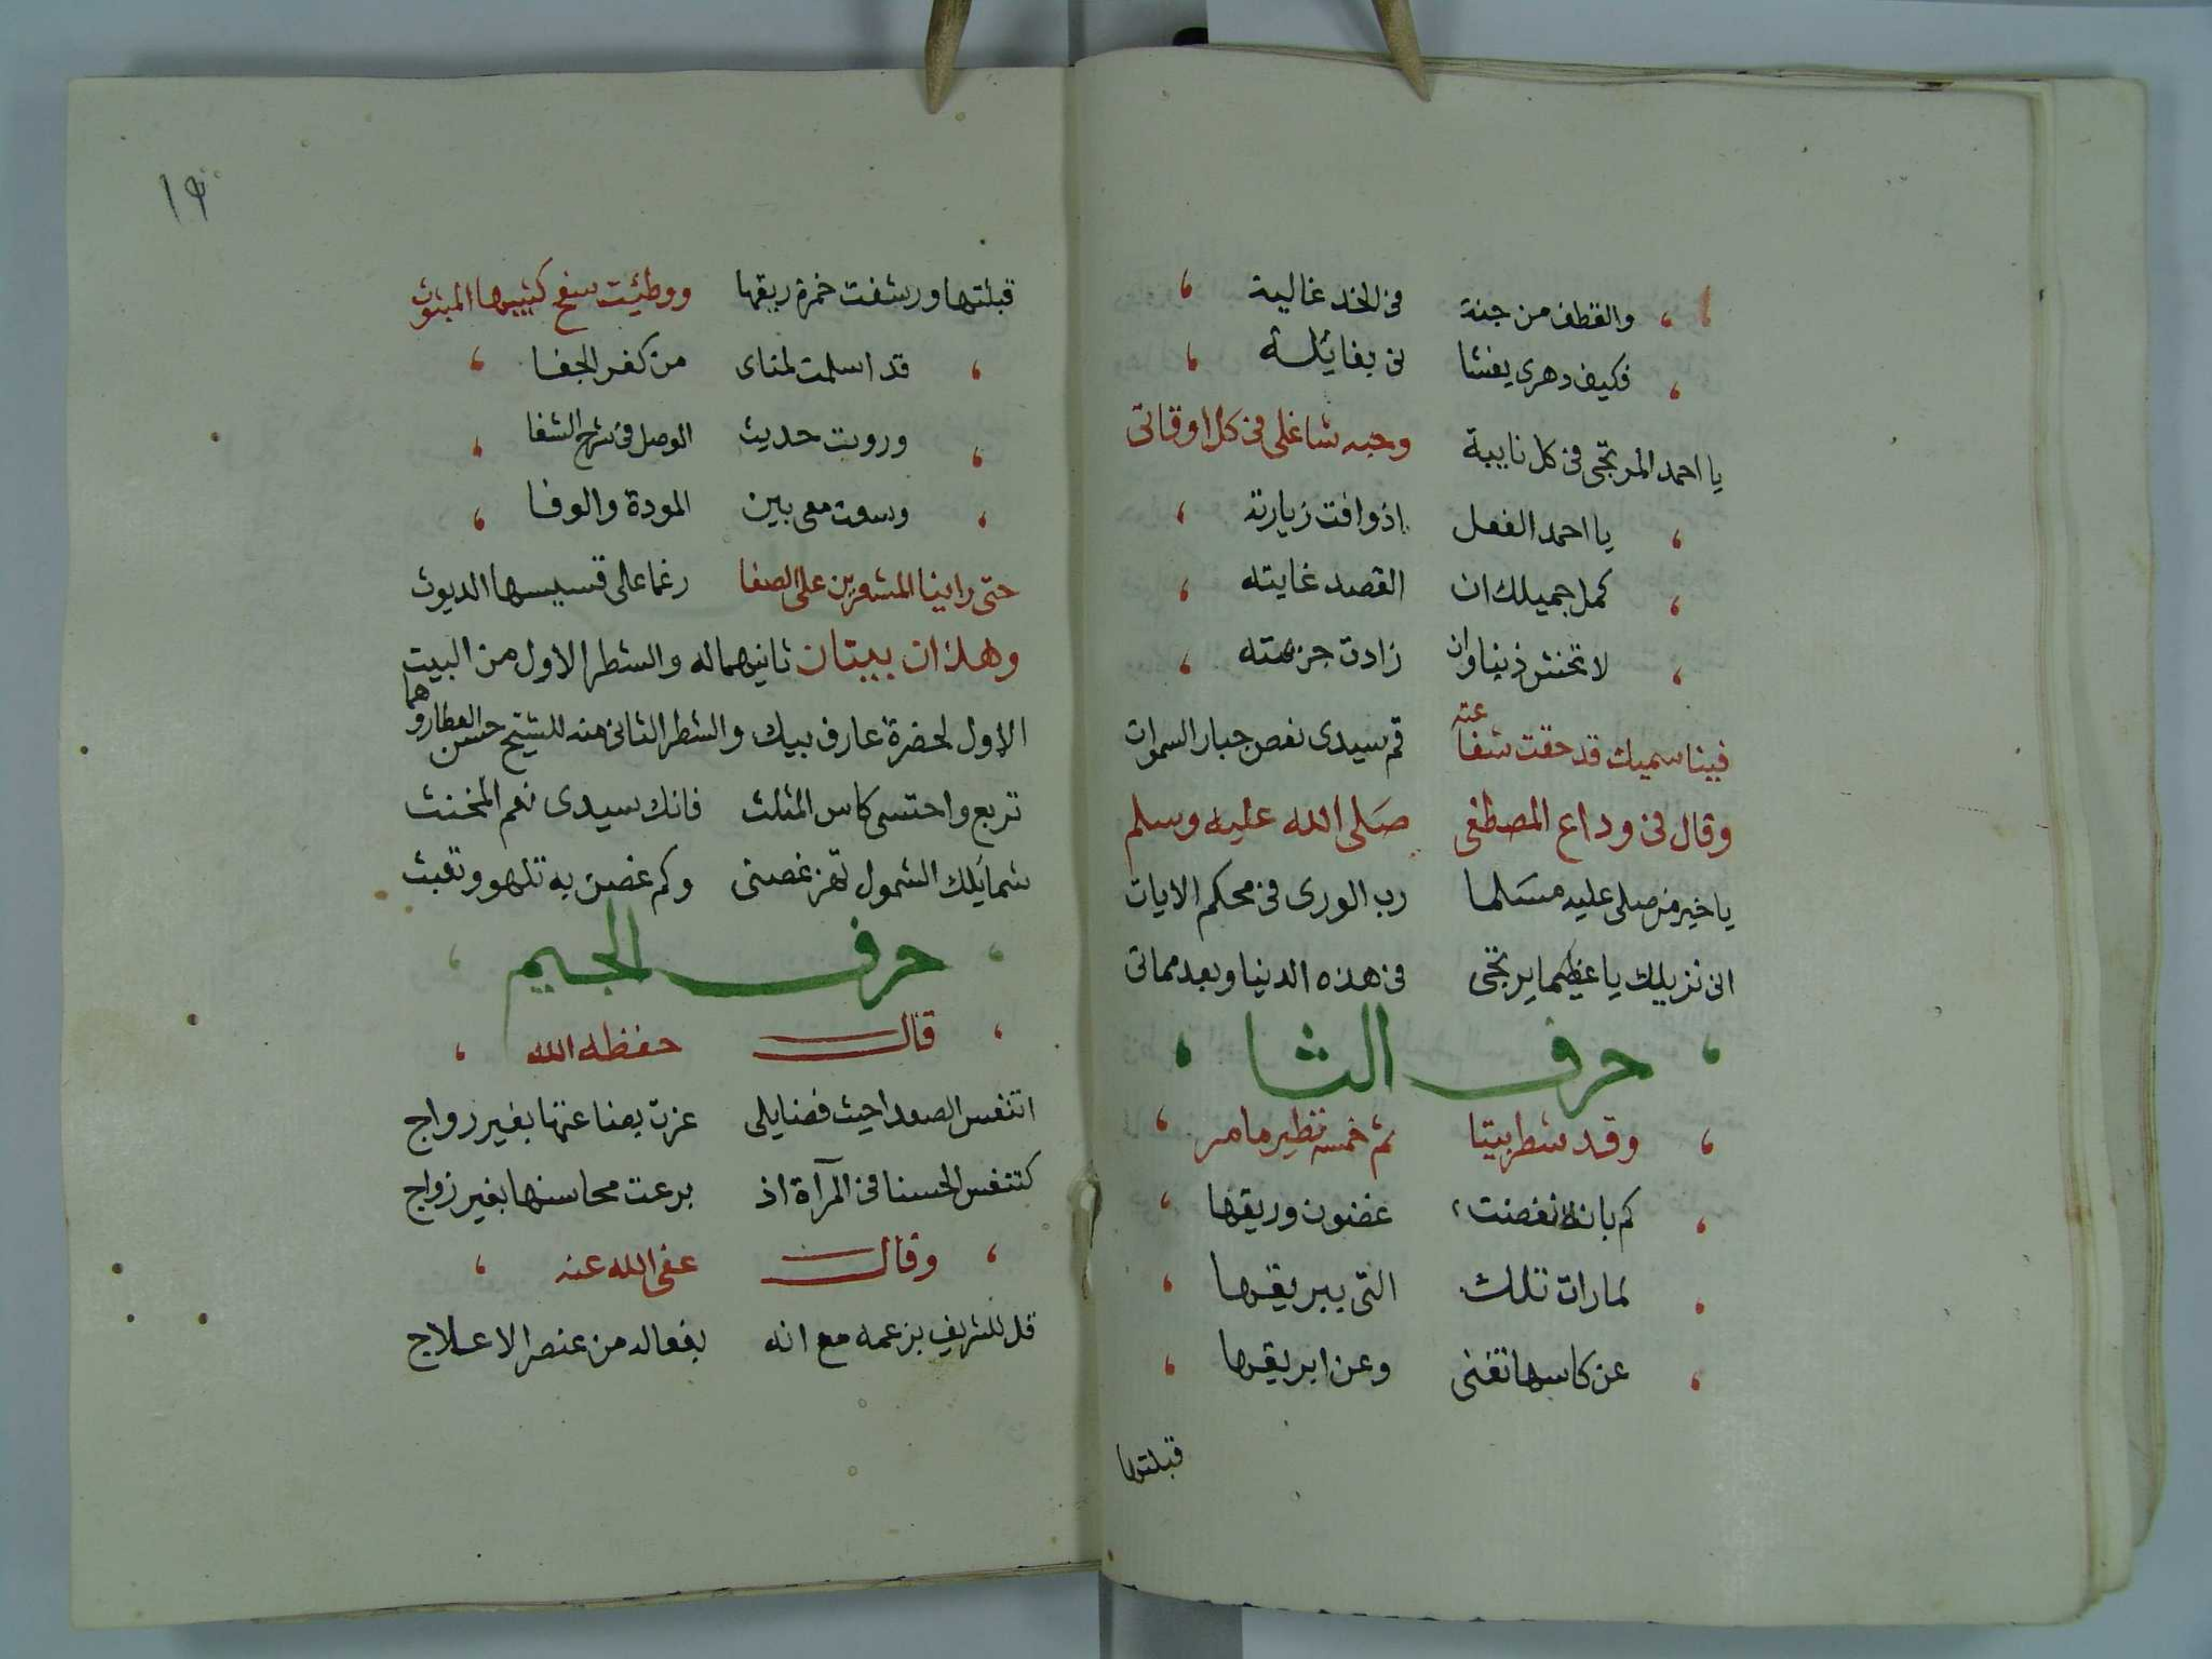 والقطف من جنة في الخد غالية
فكيف دهرى يغشا نى بغايئلة
يا احمد المرتجى فى كل نايبة وحبه شاغلى فى كل اوقاتى
يا احمد الفعل اذ وافت زيارته
كمل جميلك ان القصد غايته
لا تخش ذنبا وان زادت جزيمته
فينا سميك قد حقت شفاعته قم سيدى نعص جبار السموات
وقال فى وداع المصطفى صلى الله عليه وسلم
يا خير من صلى عليه مسلما رب الورى فى محكم الايات
انى نزيلك يا عظيما يرتجى فى هذه الدنيا وبعد مماتى
حرف الثا
وقد شطر بيتا ثم خمسه نظير ما مر
كم بانة غضنت غصون وريقها
لما رات تلك التى ببريقها
عن كاسها تغنى وعن ابريقها
قبلتها
١٩
قبلتها ورشفت خمرة ريقها ووطيئت سفح كثيبها المبثوث
قد اسلمت لمناى من كفر الجفا
وروت حديث الوصل فى شرح الشفا
وسعت معى بين المودة والوفا
حتى راينا المشعرين على الصفا رغما على قسيسها الديوث
وهذان بيتان ثانيهما له والشطر الاول من البيت
الاول لحضرة عارف بيك والشطر الثانى منه للشيخ حسن العطار وهما
تربع واحتسى كاس المثلث فانك سيدى نعم المخنث
شمايلك الشمول تهز غصنى وكم غصن به تلهو وتعبث
حرف الجيم
قال حفظه الله
اتنفس الصعدا حيث فضايلى عزت بضاعتها بغير رواج
كتنفس الحسنا فى المرآة اذ برعت محاسنها بغير زواج
وقال عفى الله عنه
قل للشريف بزعمه مع انه بفعاله من عنصر الاعلاج